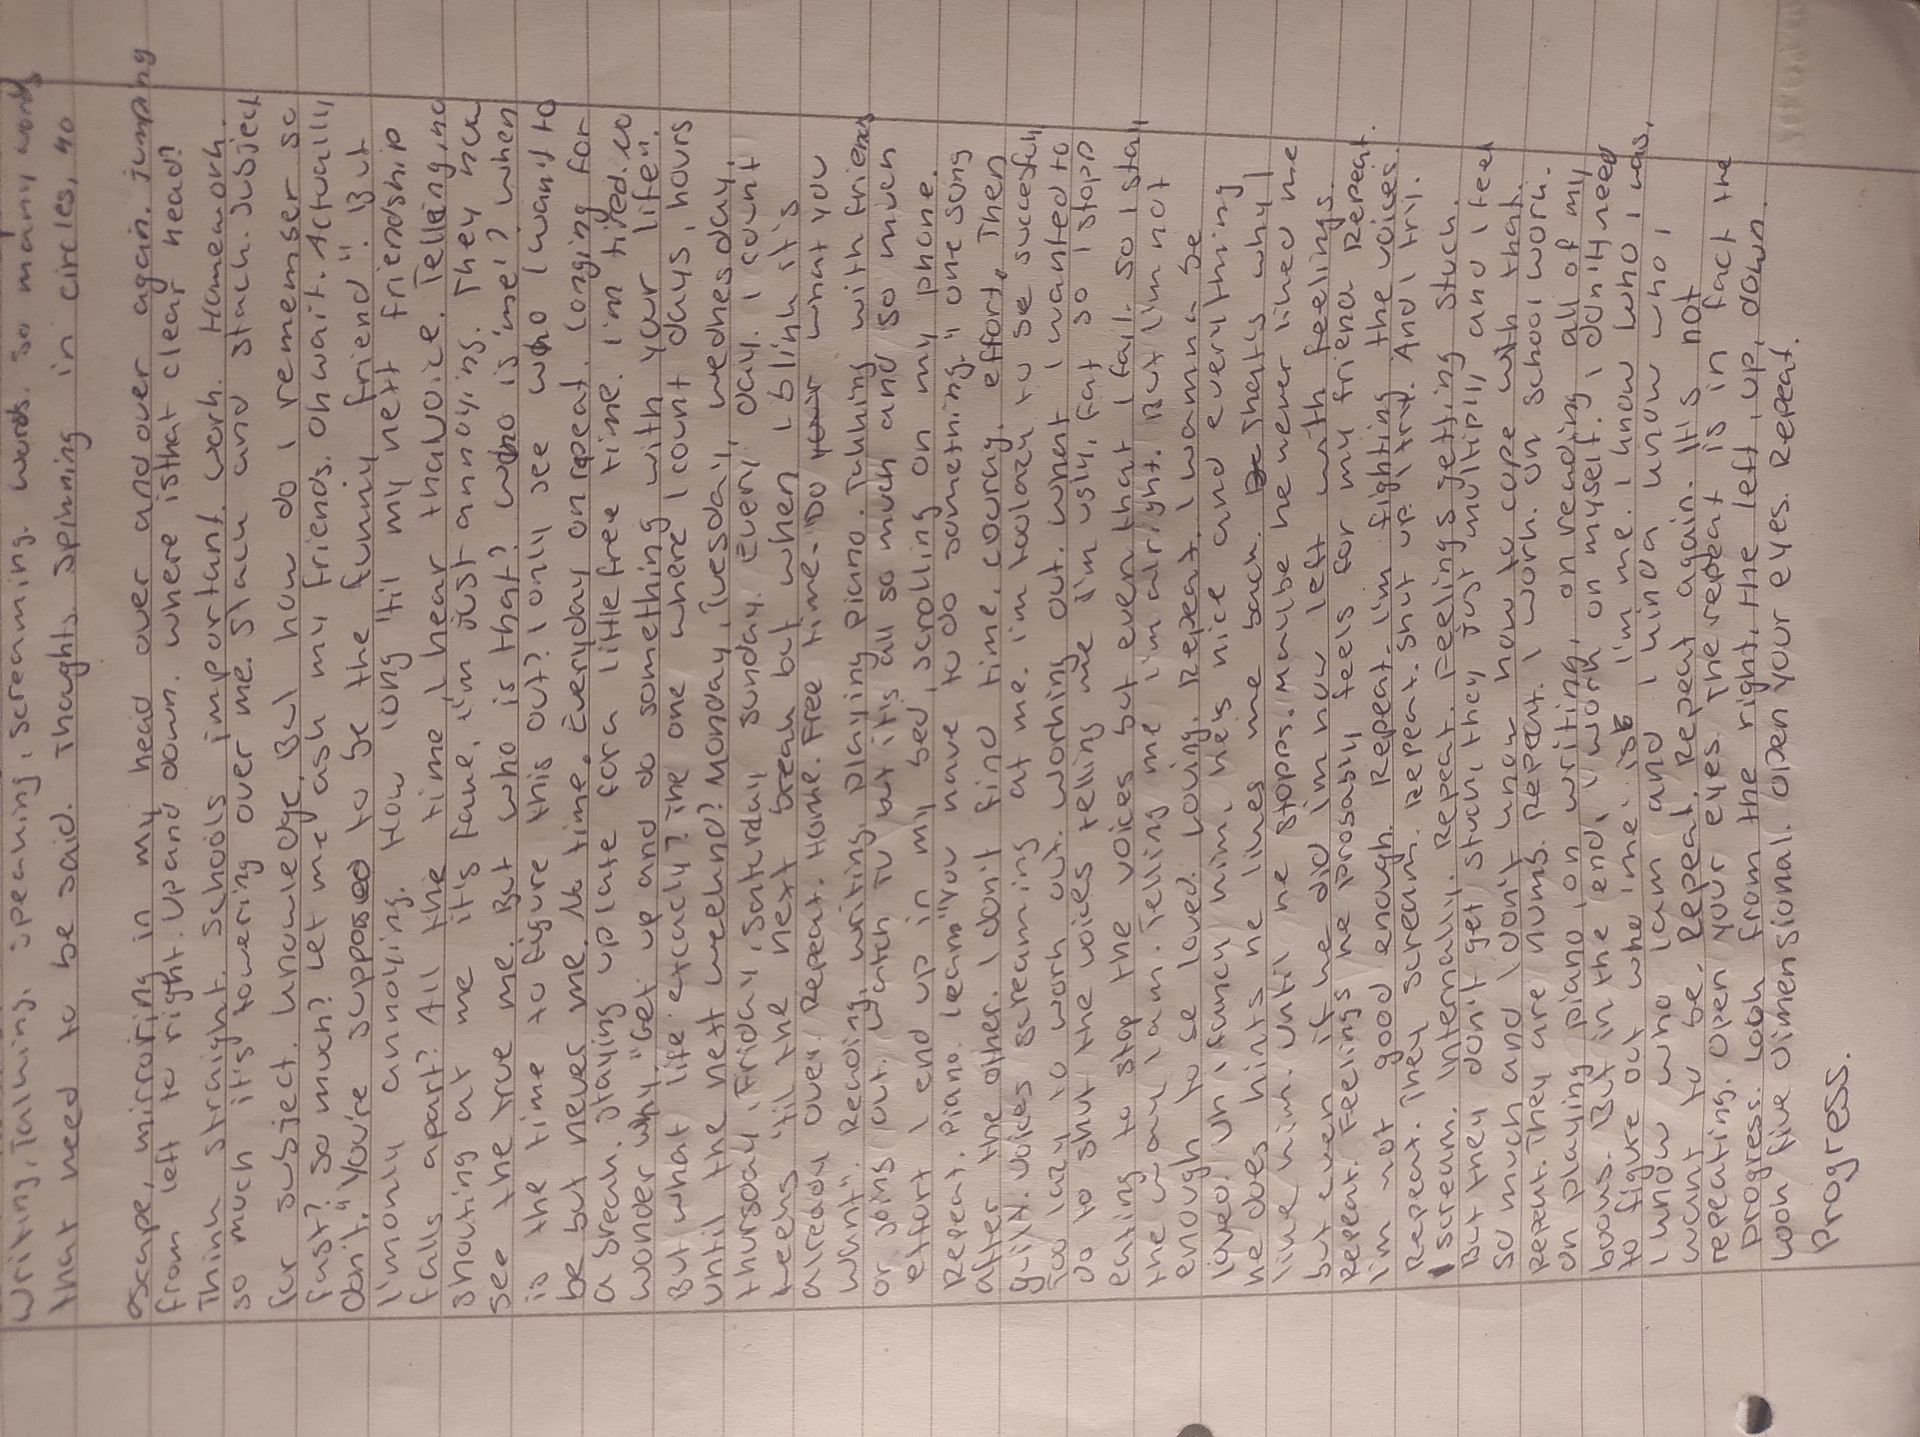 Writing, Talking, speaking, screaming. words. so many words
that need to be said. Thoughts spinning in circles, no
escape, mirroring in my head over and over again. jumping
from left to right. Up and down. where is that clear head?
Think straight. Schools important. work. Homework.
so much it's towering over me. Stack and stack. Subject
for subject. knowledge. But how do I remember so
fast? so much? Let me ask my friends. Oh wait. Actually
don't. "You're supposed to be the funny friend". But
I'm only annoying. How long 'til my next friendship
falls apart? All the time I hear that voice. Telling, no
shouting at me it's fake, i'm just annoying. They never
see the true me. But who is that? who is 'me'? when
is the time to figure this out? I only see who I want to
be but never me. No time. Everyday on repeat. Longing for
a break. Staying up late for a little free time. I'm tired. so
wonder why. "Get up and do something with your life".
But what life exactly? The one where I count days, hours
until the next weekend? Monday, Tuesday, wednesday,
thursday, Friday, Saturday sunday. Every day. I count
'til the next break but when I blink it's
already over. Repeat. Home. Free time. "Do what you
want". Reading, writing, playing piano. Talking with friends
or going out. Watch TV but it's all so much and so much
effort I end up in my bed, scrolling on my phone.
Repeat. Piano. learn "You have to do something." one song
after the other. I don't find time, courage, effort. Then
guilt. Voices screaming at me. I'm too lazy to be successful
Too lazy to work out. working out. what I wanted to
do to shut the voices telling me I'm ugly, fat so I stopp
eating to stop the voices but even that I fail. so I stay
the way I am. Telling me I'm alright. But I'm not
enough to be loved. Loving. Repeat. I wanna be
loved. Uh I fancy him. he is nice and everything
he does hints he likes me back. That's why I
like him. Until he stopps. Maybe he never liked me
but even if he did I'm now left with feelings.
Repeat. Feelings he probably feels for my friend. Repeat.
I'm not good enough. Repeat. I'm fighting the voices.
Repeat. They scream. Repeat. Shut up. I try. And I try.
I scream. Internally. Repeat. Feelings getting stuck.
But they don't get stuck, they just multiply, and I feel
so much and I don't know how to cope with that.
Repeat. They are numb. Repeat. I work. on school work.
On playing piano, on writing, on reading all of my
books. But in the end, I work on myself. I don't need
to figure out who 'me' is I'm me. I know who I was,
I know who I am and I kinda know who I
want to be. Repeat. Repeat again. It's not
repeating. Open your eyes. The repeat is in fact the
progress. Look from the right, the left, up, down.
Look five dimensional. Open your eyes. Repeat.
Progress.